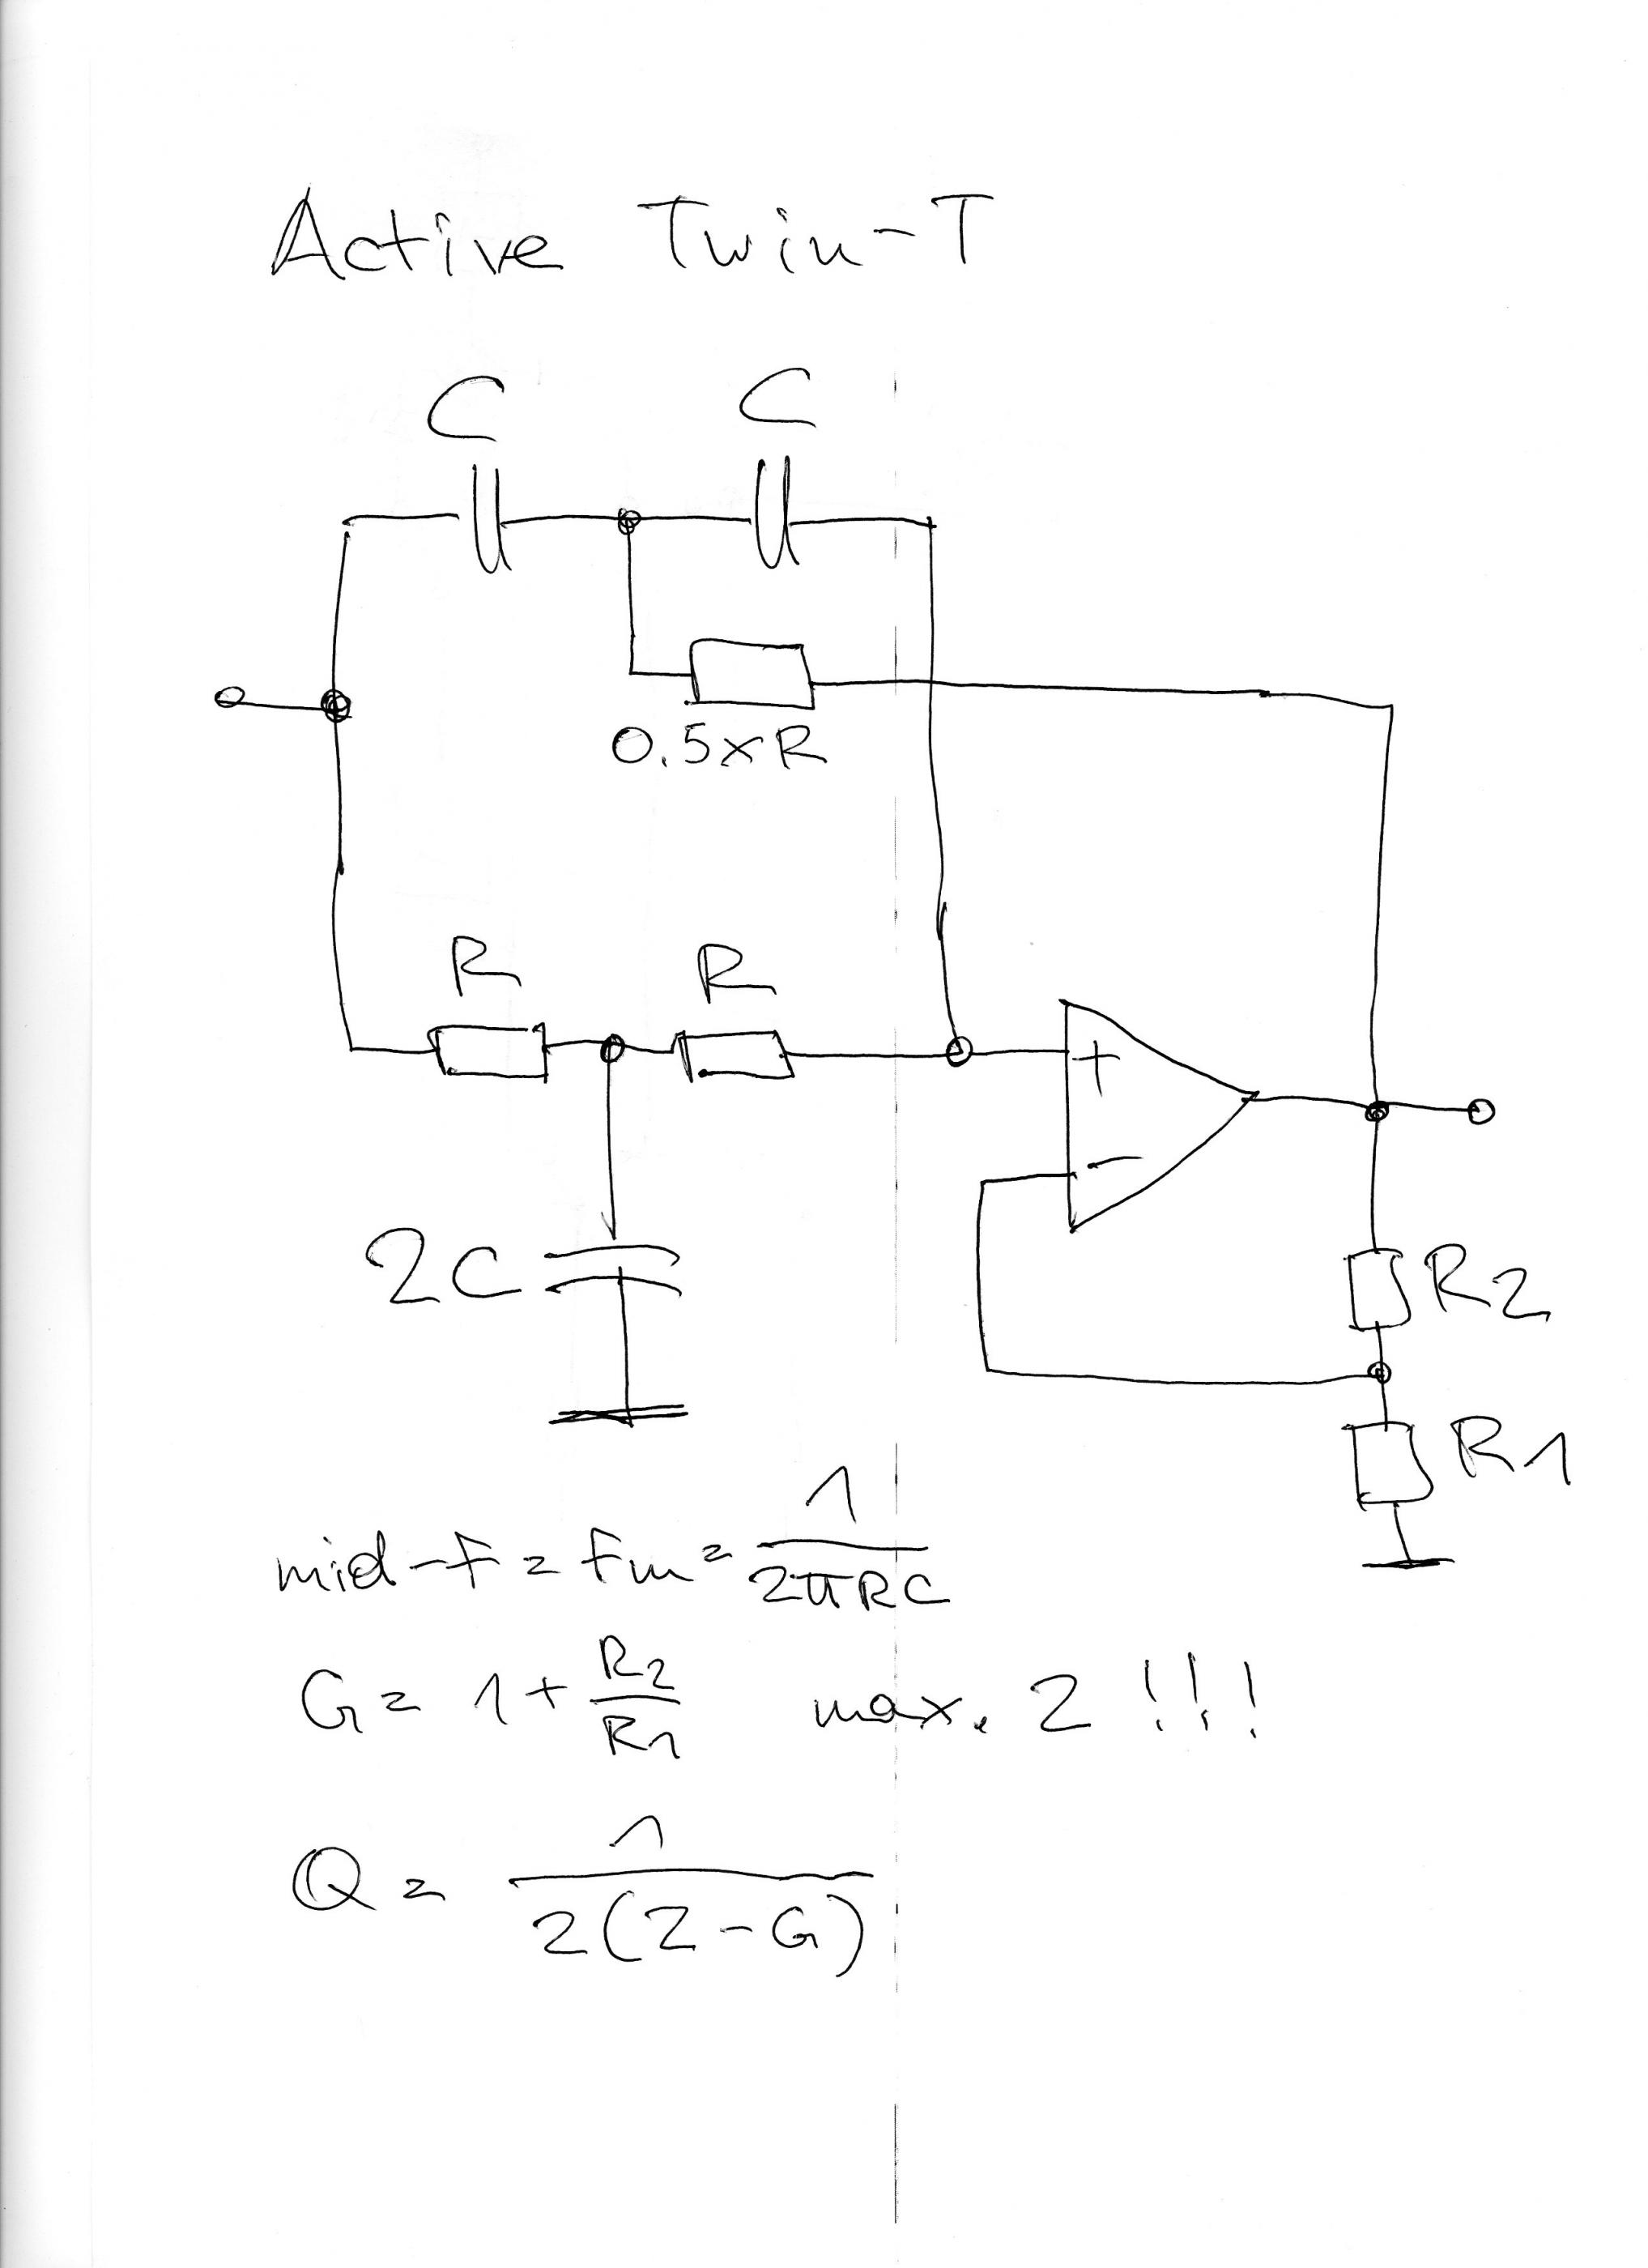 Active Twin-T
C C
0.5xR
R R
+
−
2C
R2
R1
mid-f = fm = 1/(2πRC)
G = 1 + R2/R1 max. 2 !!!
Q = 1/(2(2-G))